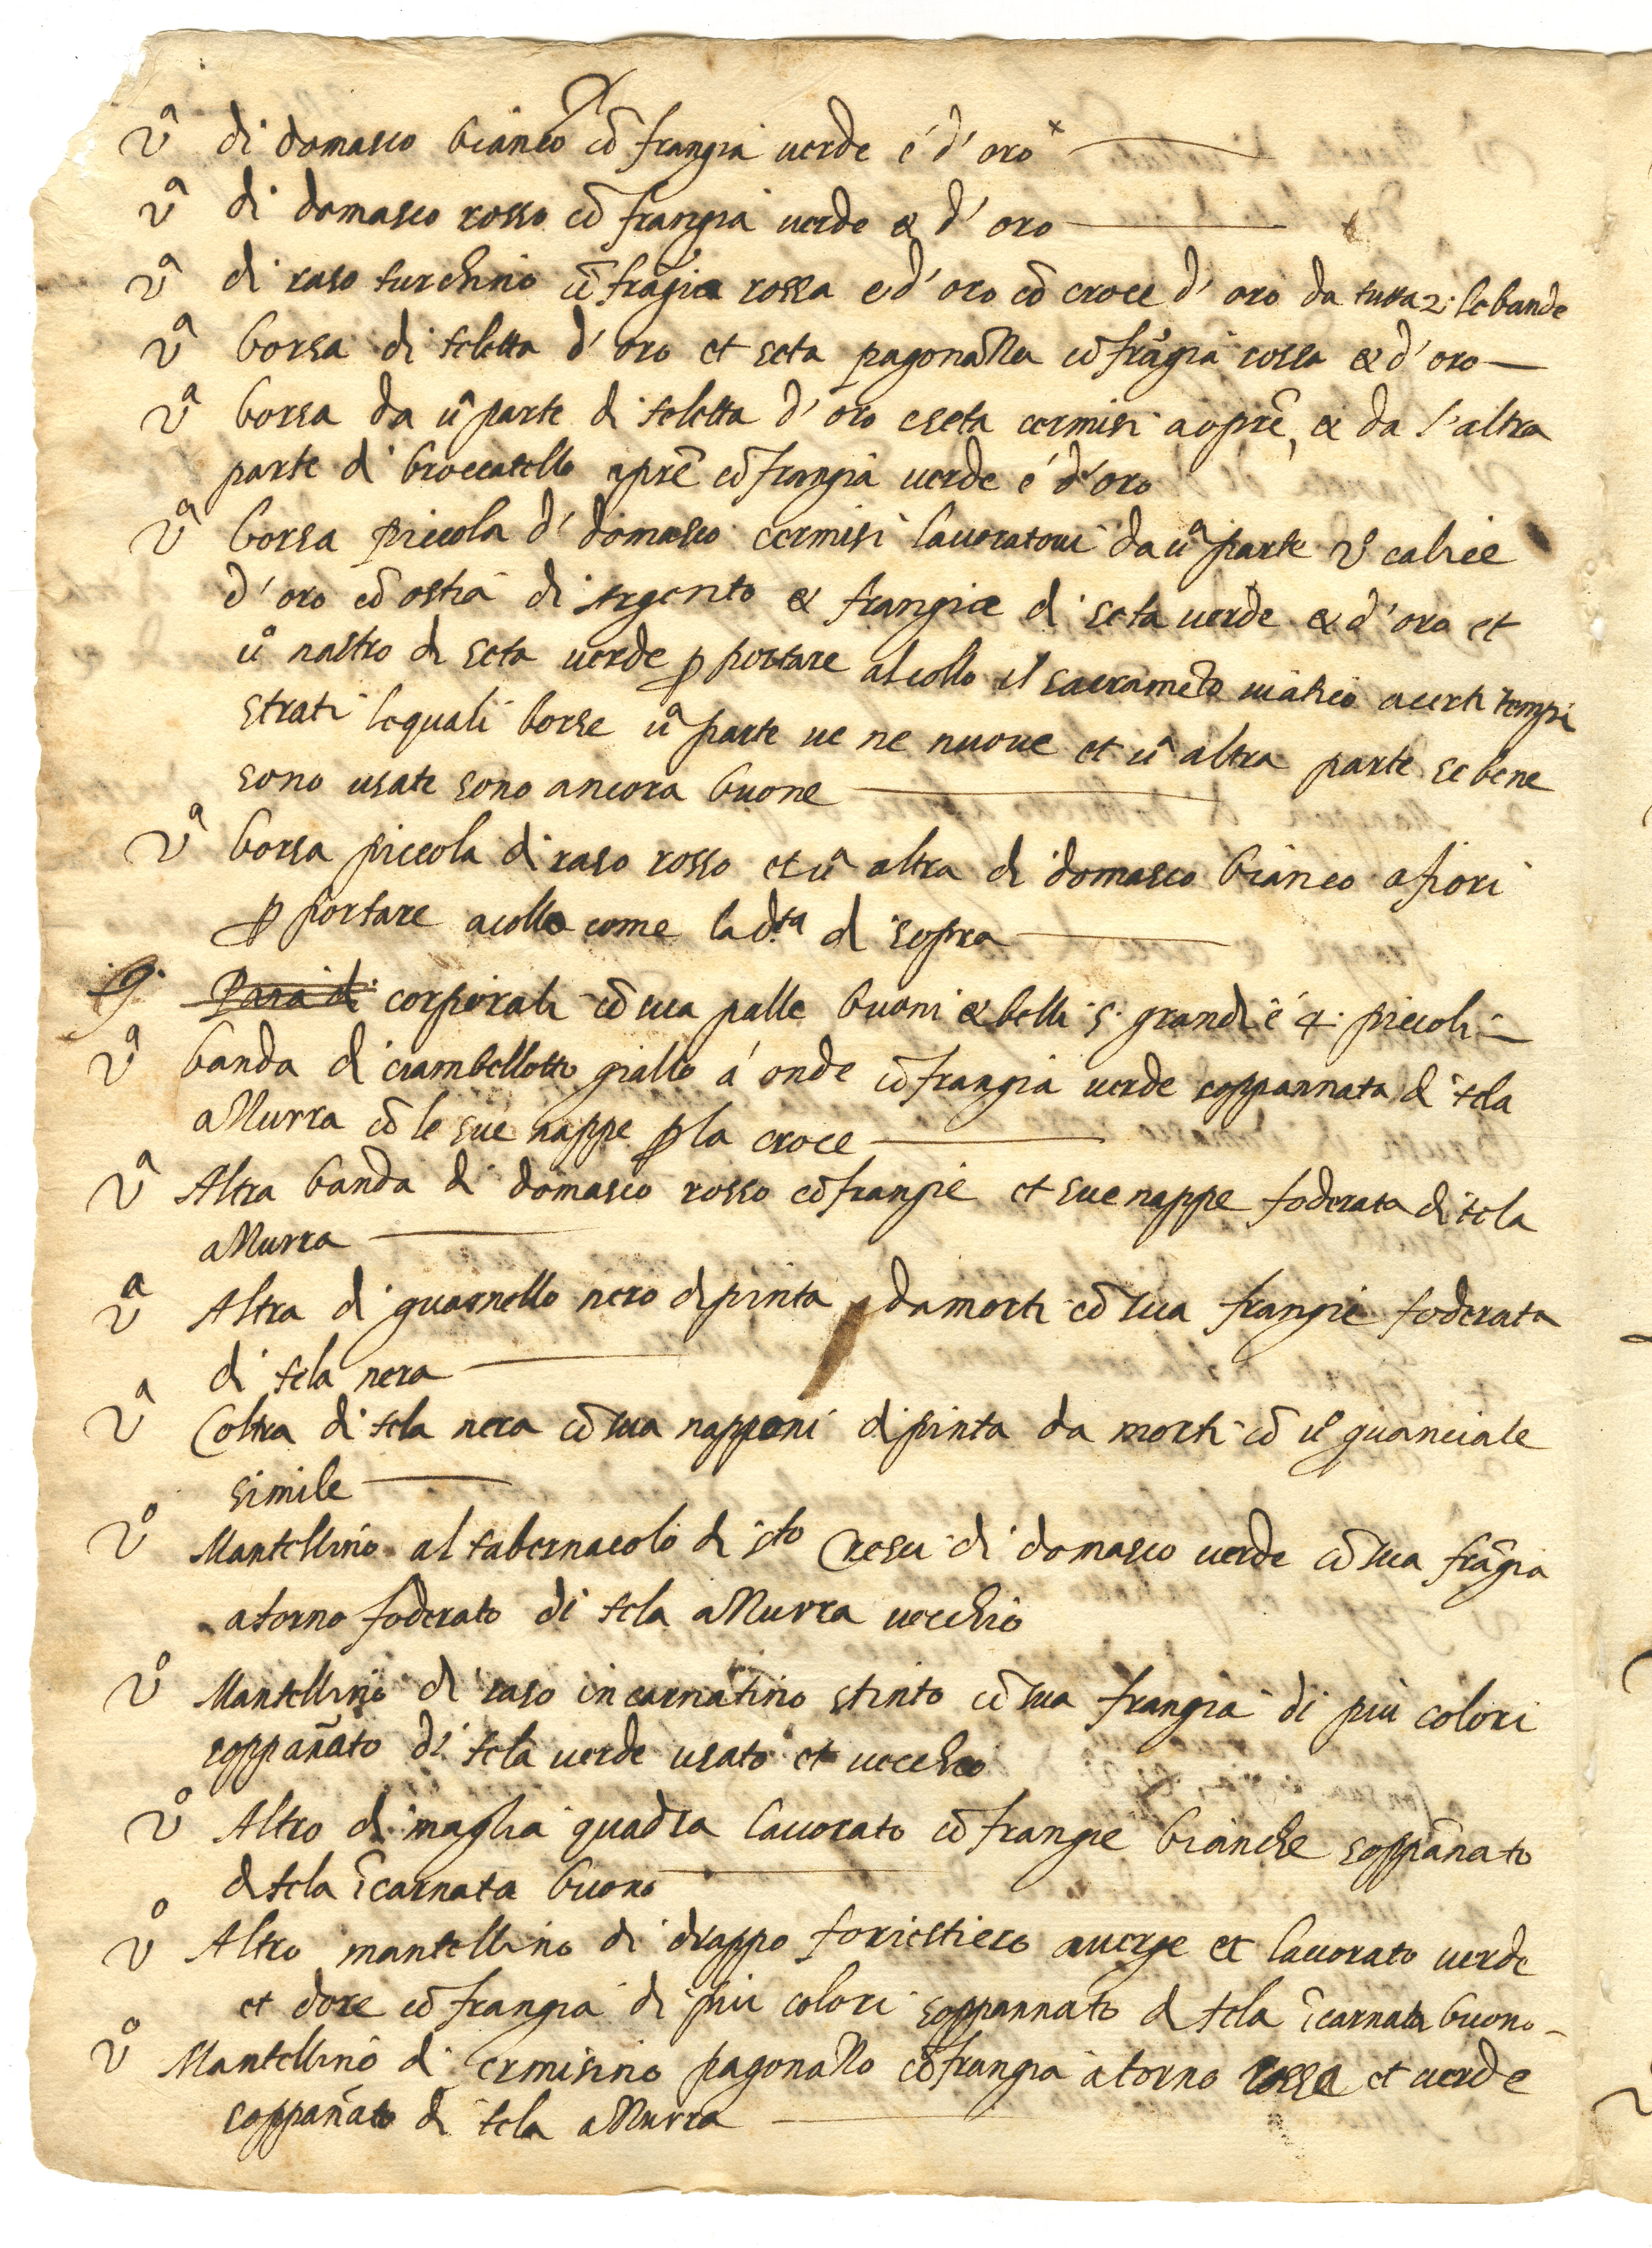 Vª di domasco bianco cō frangia uerde é d' oro
Vª di domasco rosso cō frangia uerde & d' oro
Vª di raso turchino cō frāgia rossa e d' oro cō croce d' oro da tutta 2. le bande
Vª borsa di teletta d' oro et seta pagonazza cō frāgia rossa & d' oro
Vª borsa da uª parte di teletta d' oro e seta cermisi aoprē, & da l' altra
parte di broccatello aprē cō frangia uerde é d'oro
Vª borsa piccola d' domasco cermisi lauoratoui da uª parte Vº calice
d' oro cō ostia di argento & frangia di seta uerde & d' oro et
uº nastro di seta uerde p portare al collo il sacrameto uiatico a certi tempi
strati lequali borse uª parte ue ne nuoue et uª altra parte se bene
sono usate sono ancora buone
Vª borsa piccola di raso rosso et uª altra di domasco bianco a fiori
p portare a collo come la d.ta di sopra
9. Para di corporali cō sua palle buoni & belli 5. grandi é 4. piccoli
Vª banda di ciambellotto giallo á onde cō frangia uerde soppannata di tela
azzurra cō le sue nappe p la croce
Vª Altra banda di domasco rosso cō frangie et sue nappe foderata di tela
azzurra
Vª Altra di guarnello nero dipinta da morti cō sua frangie foderata
di tela nera
Vª Coltra di tela nera cō sua napponi dipinta da morti cō uº guanciale
simile
Vº Mantellino al tabernacolo di sto Cresci di domasco uerde cō sua frāgia
atorno foderato di tela azzurra uecchio
Vº Mantellino di raso incarnatino stinto cō sua frangia di più colori
soppañato di tela uerde usato et uecchio
Vº Altro di maglia quadra lauorato cō frange bianche soppānato
di tela īcarnata buono
Vº Altro mantellino di drappo foriestiero a uerge et lauorato uerde
et dore cō frangia di più colori soppannato di tela īcarnata buono
Vº Mantellino di ermisino pagonazzo cō frangia atorno rossa et uerde
soppañato di tela azzurra